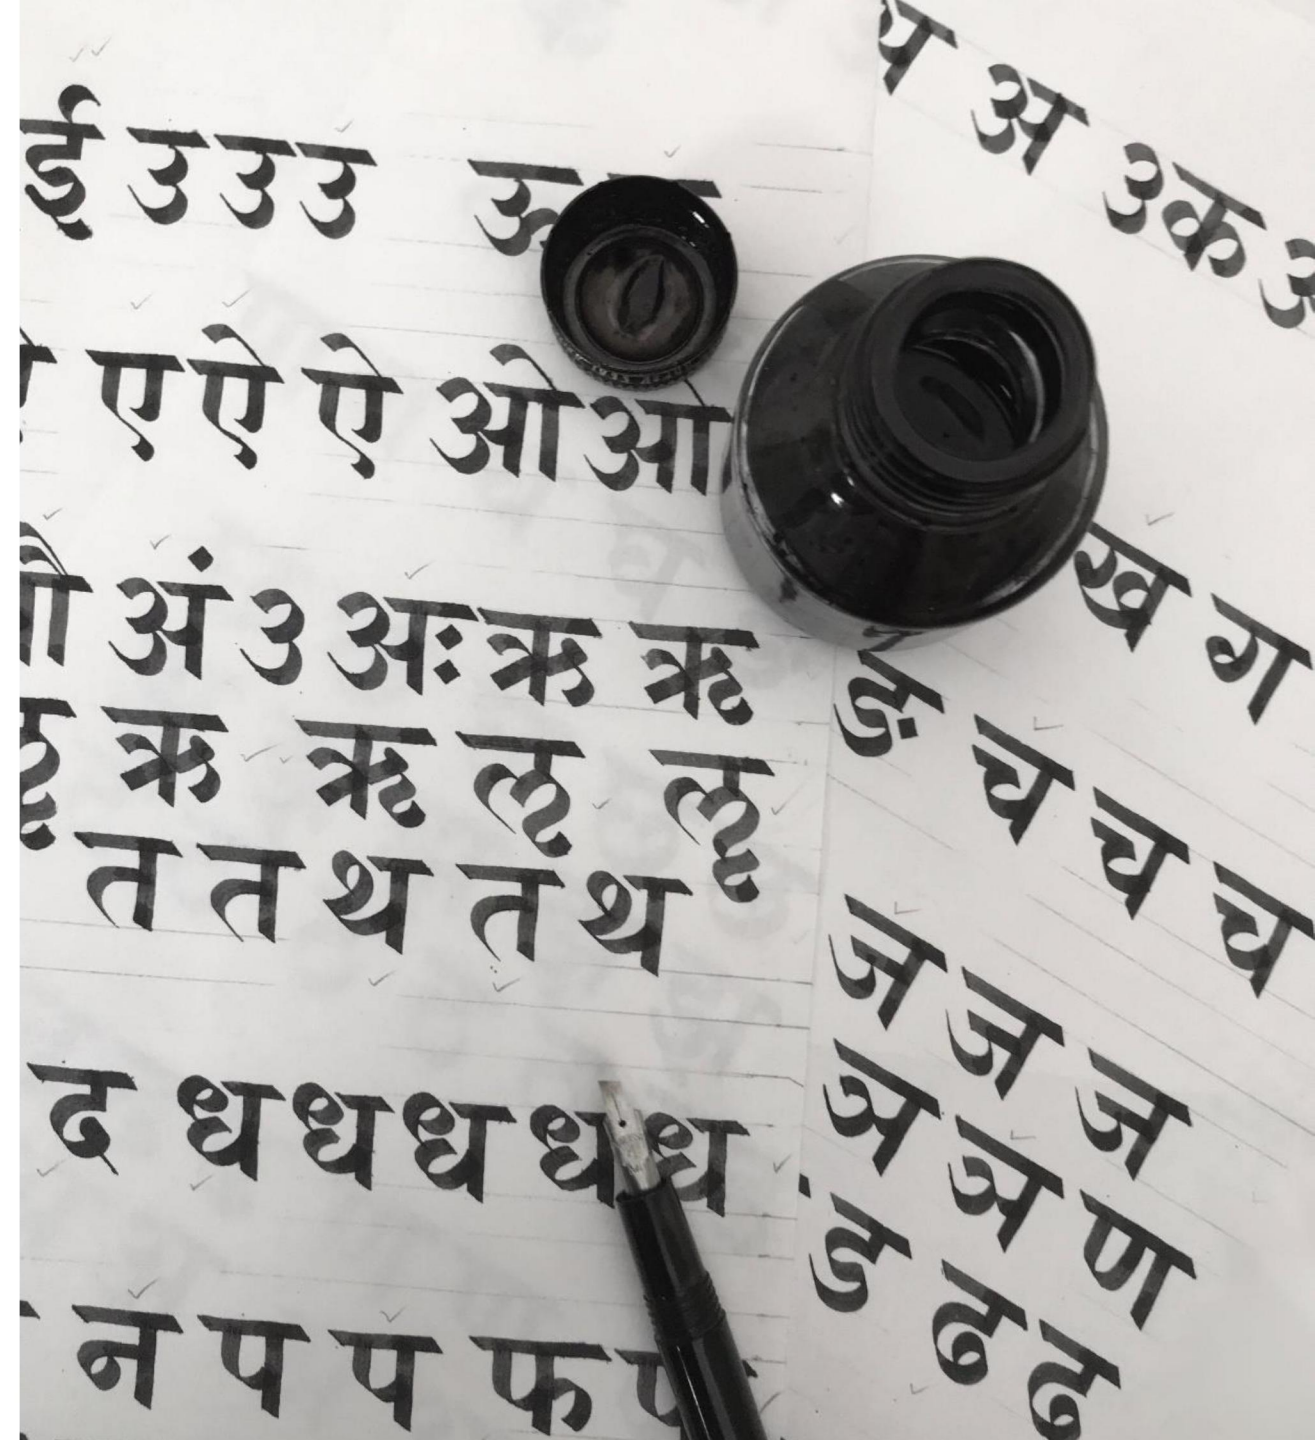 ई उ उ उ ऊ
ए ऐ ऐ ओ
अं उ अः ऋ ॠ
ऋ ॠ ऌ ॡ
त त थ त थ
द ध ध ध ध ध
न प प फ
अ उ क
ख ग
ङ च च च
ज ज ज
ञ ञ ण
ड ढ ढ